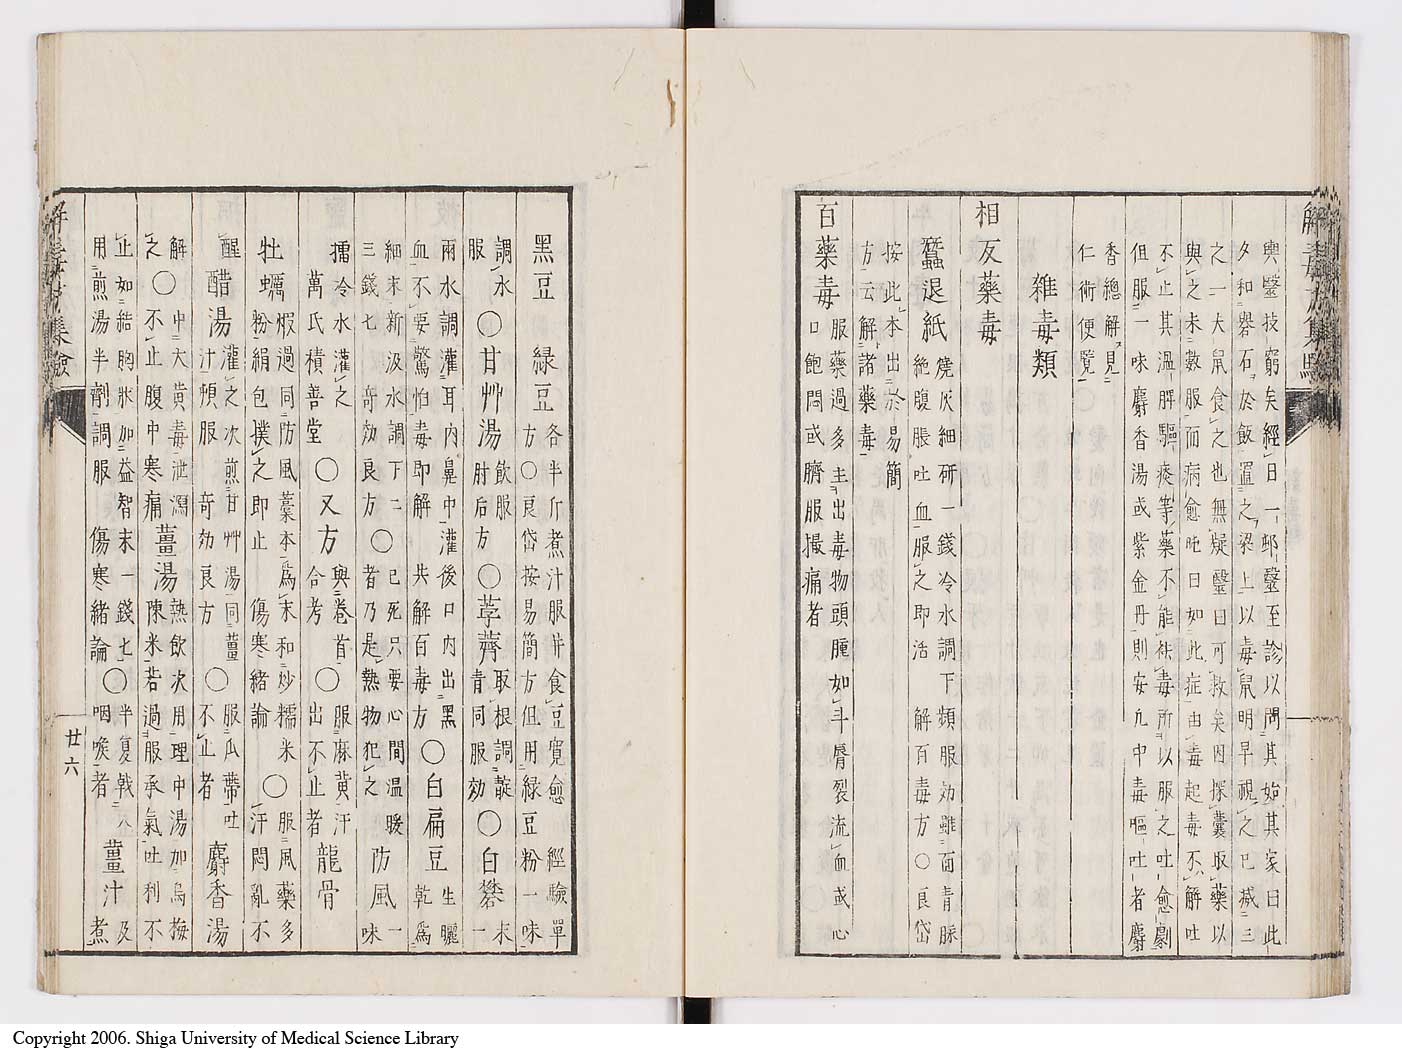 解毒方集驗
輿鑒技窮矣經日一鄰鑒至診以問其始其家曰此
夕和礜石於飯置之梁上以毒鼠明早視之已減三
之一犬鼠食之也無疑鑒曰可救矣因探囊取藥以
與之未數服而病愈吃曰如此症由毒起毒不解吐
不止其溫脾驅痰等藥不能祛毒所以服之吐愈劇
但服一味麝香湯或紫金丹則安凡中毒嘔吐者麝
香總解見
仁術便覽
雜毒類
相反藥毒
蠶退紙
燒灰細研一錢冷水調下頻服効雖面青脈
絶腹脹吐血服之即活 解百毒方〇良岱
按此本出於易簡
方云解諸藥毒
百藥毒
服藥過多圭出毒物頭腫如斗脣裂流血或心
口飽悶或臍服撮痛者
黑豆 綠豆
各半斤煮汁服并食豆寬愈 經驗單
方〇良岱按易簡方但用綠豆粉一味
調水
服
〇甘艸湯
飲服
肘后方
〇葶薺
取根調蘸
青同服効
〇白礬
末一
兩水調灌耳內鼻中灌後口內出黑
血不要驚怕毒即解 共解百毒方
〇白扁豆
生曬
乾爲
細末新汲水調下二
三錢七 奇効良方
〇
已死只要心間溫暖
者乃是熱物犯之
防風
一
味
擂冷水灌之
萬氏積善堂
〇又方
與卷首
合考
〇
服麻黃汗
出不止者
龍骨
牡蠣
煆過同防風藁本爲末和炒糯米
粉絹包撲之即止 傷寒緒論
〇
服風藥多
汗悶亂不
醒
醋湯
灌之次煎甘艸湯同薑
汁頓服 奇効良方
〇
服瓜蒂吐
不止者
麝香湯
解
之
〇
中大黃毒泄瀉
不止腹中寒痛
薑湯
熱飲次用理中湯加烏梅
陳米若過服承氣吐利不
止如結胸狀加益智末一錢七
用煎湯半劑調服 傷寒緒論
〇
半夏戟人
咽喉者
薑汁
及
煮
解毒方集驗
廿六
Copyright 2006. Shiga University of Medical Science Library